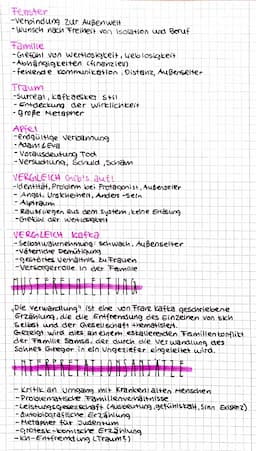 Fenster
-Verbindung zur Außenwelt
-Wunsch nach Freiheit von Isolation und Beruf
Familie
-Gefühl von Wertlosigkeit, Leblosigkeit
-Abhängigkeiten (finanziell)
-fehlende Kommunikation, Distanz, Außenseiter
Traum
-Surreal, kafkaesker Stil
-Entdeckung der Wirklichkeit
-große Metapher
Apfel
-Endgültige Verbannung
-Adam & Eva
-Vorausdeutung Tod
-Versuchung, Schuld, Scham
VERGLEICH Gib's auf!
-Identität, Problem bei Protagonist, Außenseiter
-Angst, Unsicherheit, Anders-Sein
-Alptraum
- aus dem System, keine Erlösung
-Gefühl der Wertlosigkeit
VERGLEICH Kafka
-Selbstwahrnehmung: schwach, Außenseiter
-väterliche Demütigung
-gestörtes Verhältnis zu Frauen
-Versorgerrolle in der Familie
MUSTEREINLEITUNG
"Die Verwandlung" ist eine von Franz Kafka geschriebene
Erzählung, die die Entfremdung des Einzelnen von sich
selbst und der Gesellschaft thematisiert.
Gezeigt wird dies an einem eskalierenden Familienkonflikt
der Familie Samsa, der durch die Verwandlung des
Sohnes Gregor in ein Ungeziefer eingeleitet wird.
INTERPRETATIONSANSÄTZE
-Kritik an Umgang mit kranken/alten Menschen
-Problematische Familienverhältnisse
-Leistungsgesellschaft (Ausbeutung, gefühlskalt, Sinn Existenz)
-autobiografische Erzählung
-Metapher für Judentum
-grotesk-komische Erzählung
-Ich-Entfremdung (Traum?)